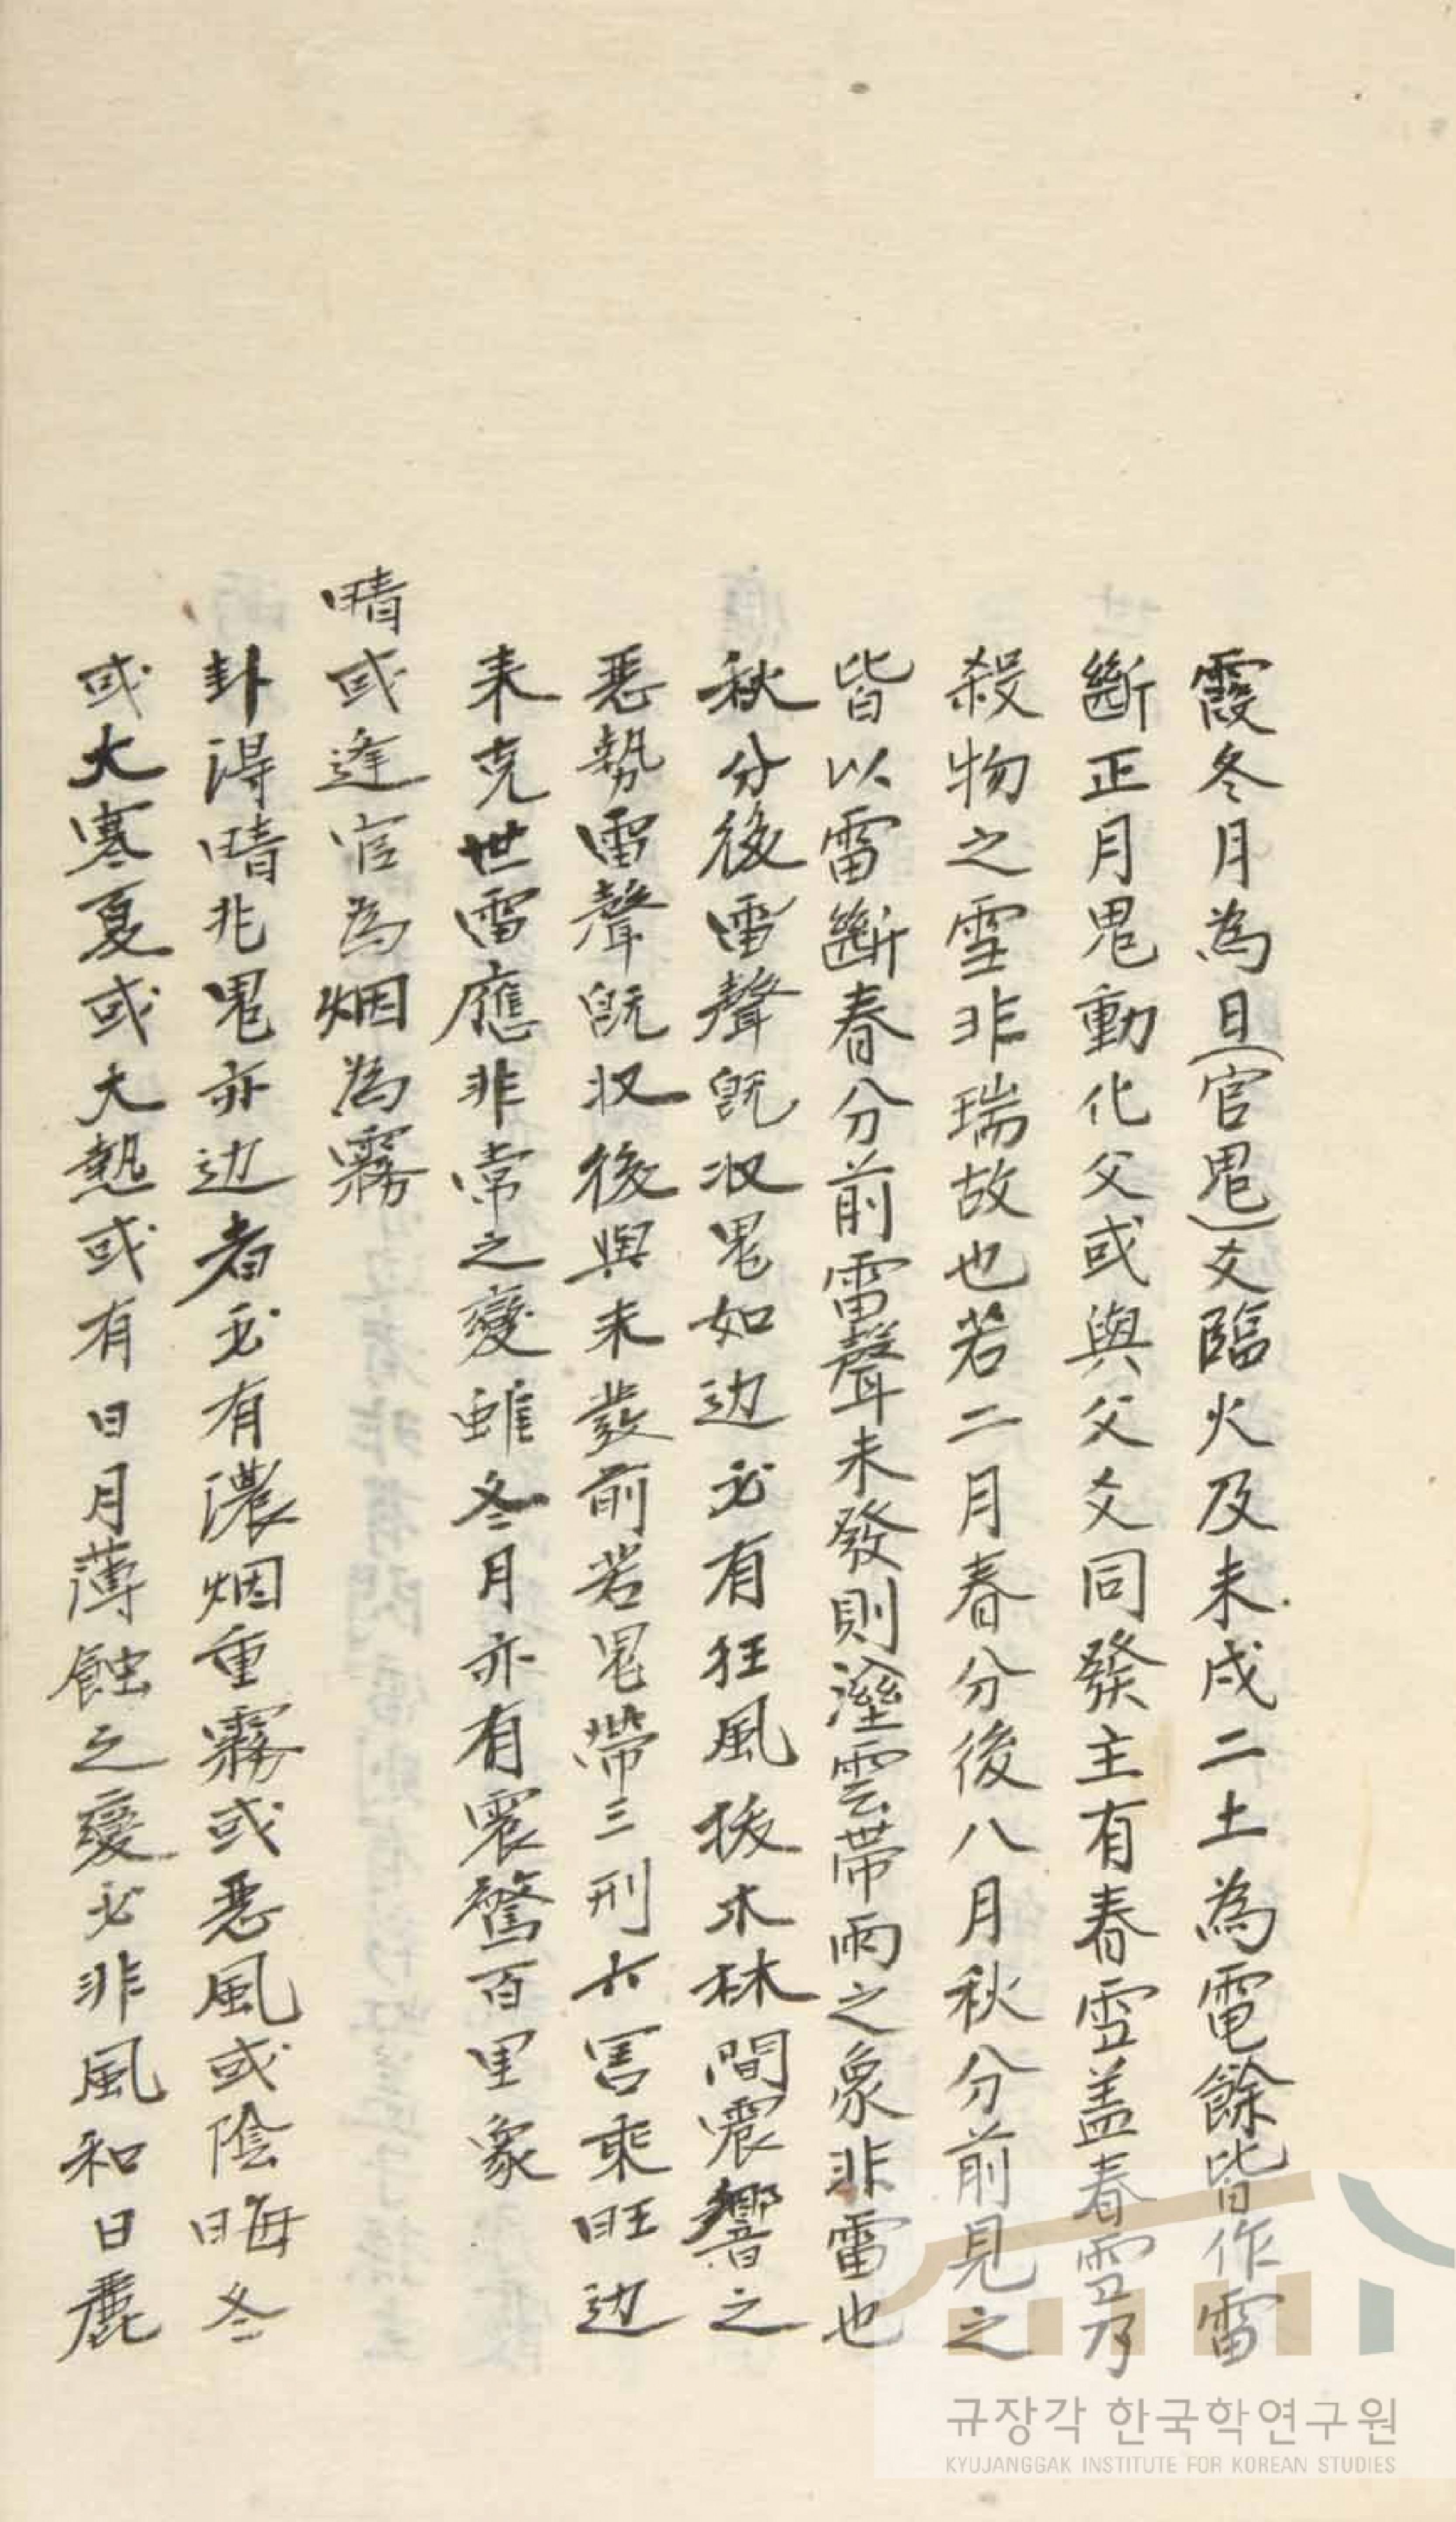 霞冬月為日(官鬼)爻臨火及未戌二土為電餘皆作雷
斷正月鬼動化父或與父爻同發主有春雪盖春雪乃
殺物之雪非瑞故也若二月春分後八月秋分前見之
皆以雷斷春分前雷聲未發則溼雲帶雨之象非雷也
秋分後雷聲旣収鬼如边必有狂風拔木林間震響之
惡勢雷聲旣収後與未發前若鬼帶三刑六害乘旺边
来克世雷應非常之變雖冬月亦有震驚百里象
晴或逢官為烟為霧
卦得晴兆鬼亦边者必有濃烟重霧或惡風或陰晦冬
或大寒夏或大熱或有日月薄蝕之變必非風和日麗
규장각 한국학연구원
KYUJANGGAK INSTITUTE FOR KOREAN STUDIES